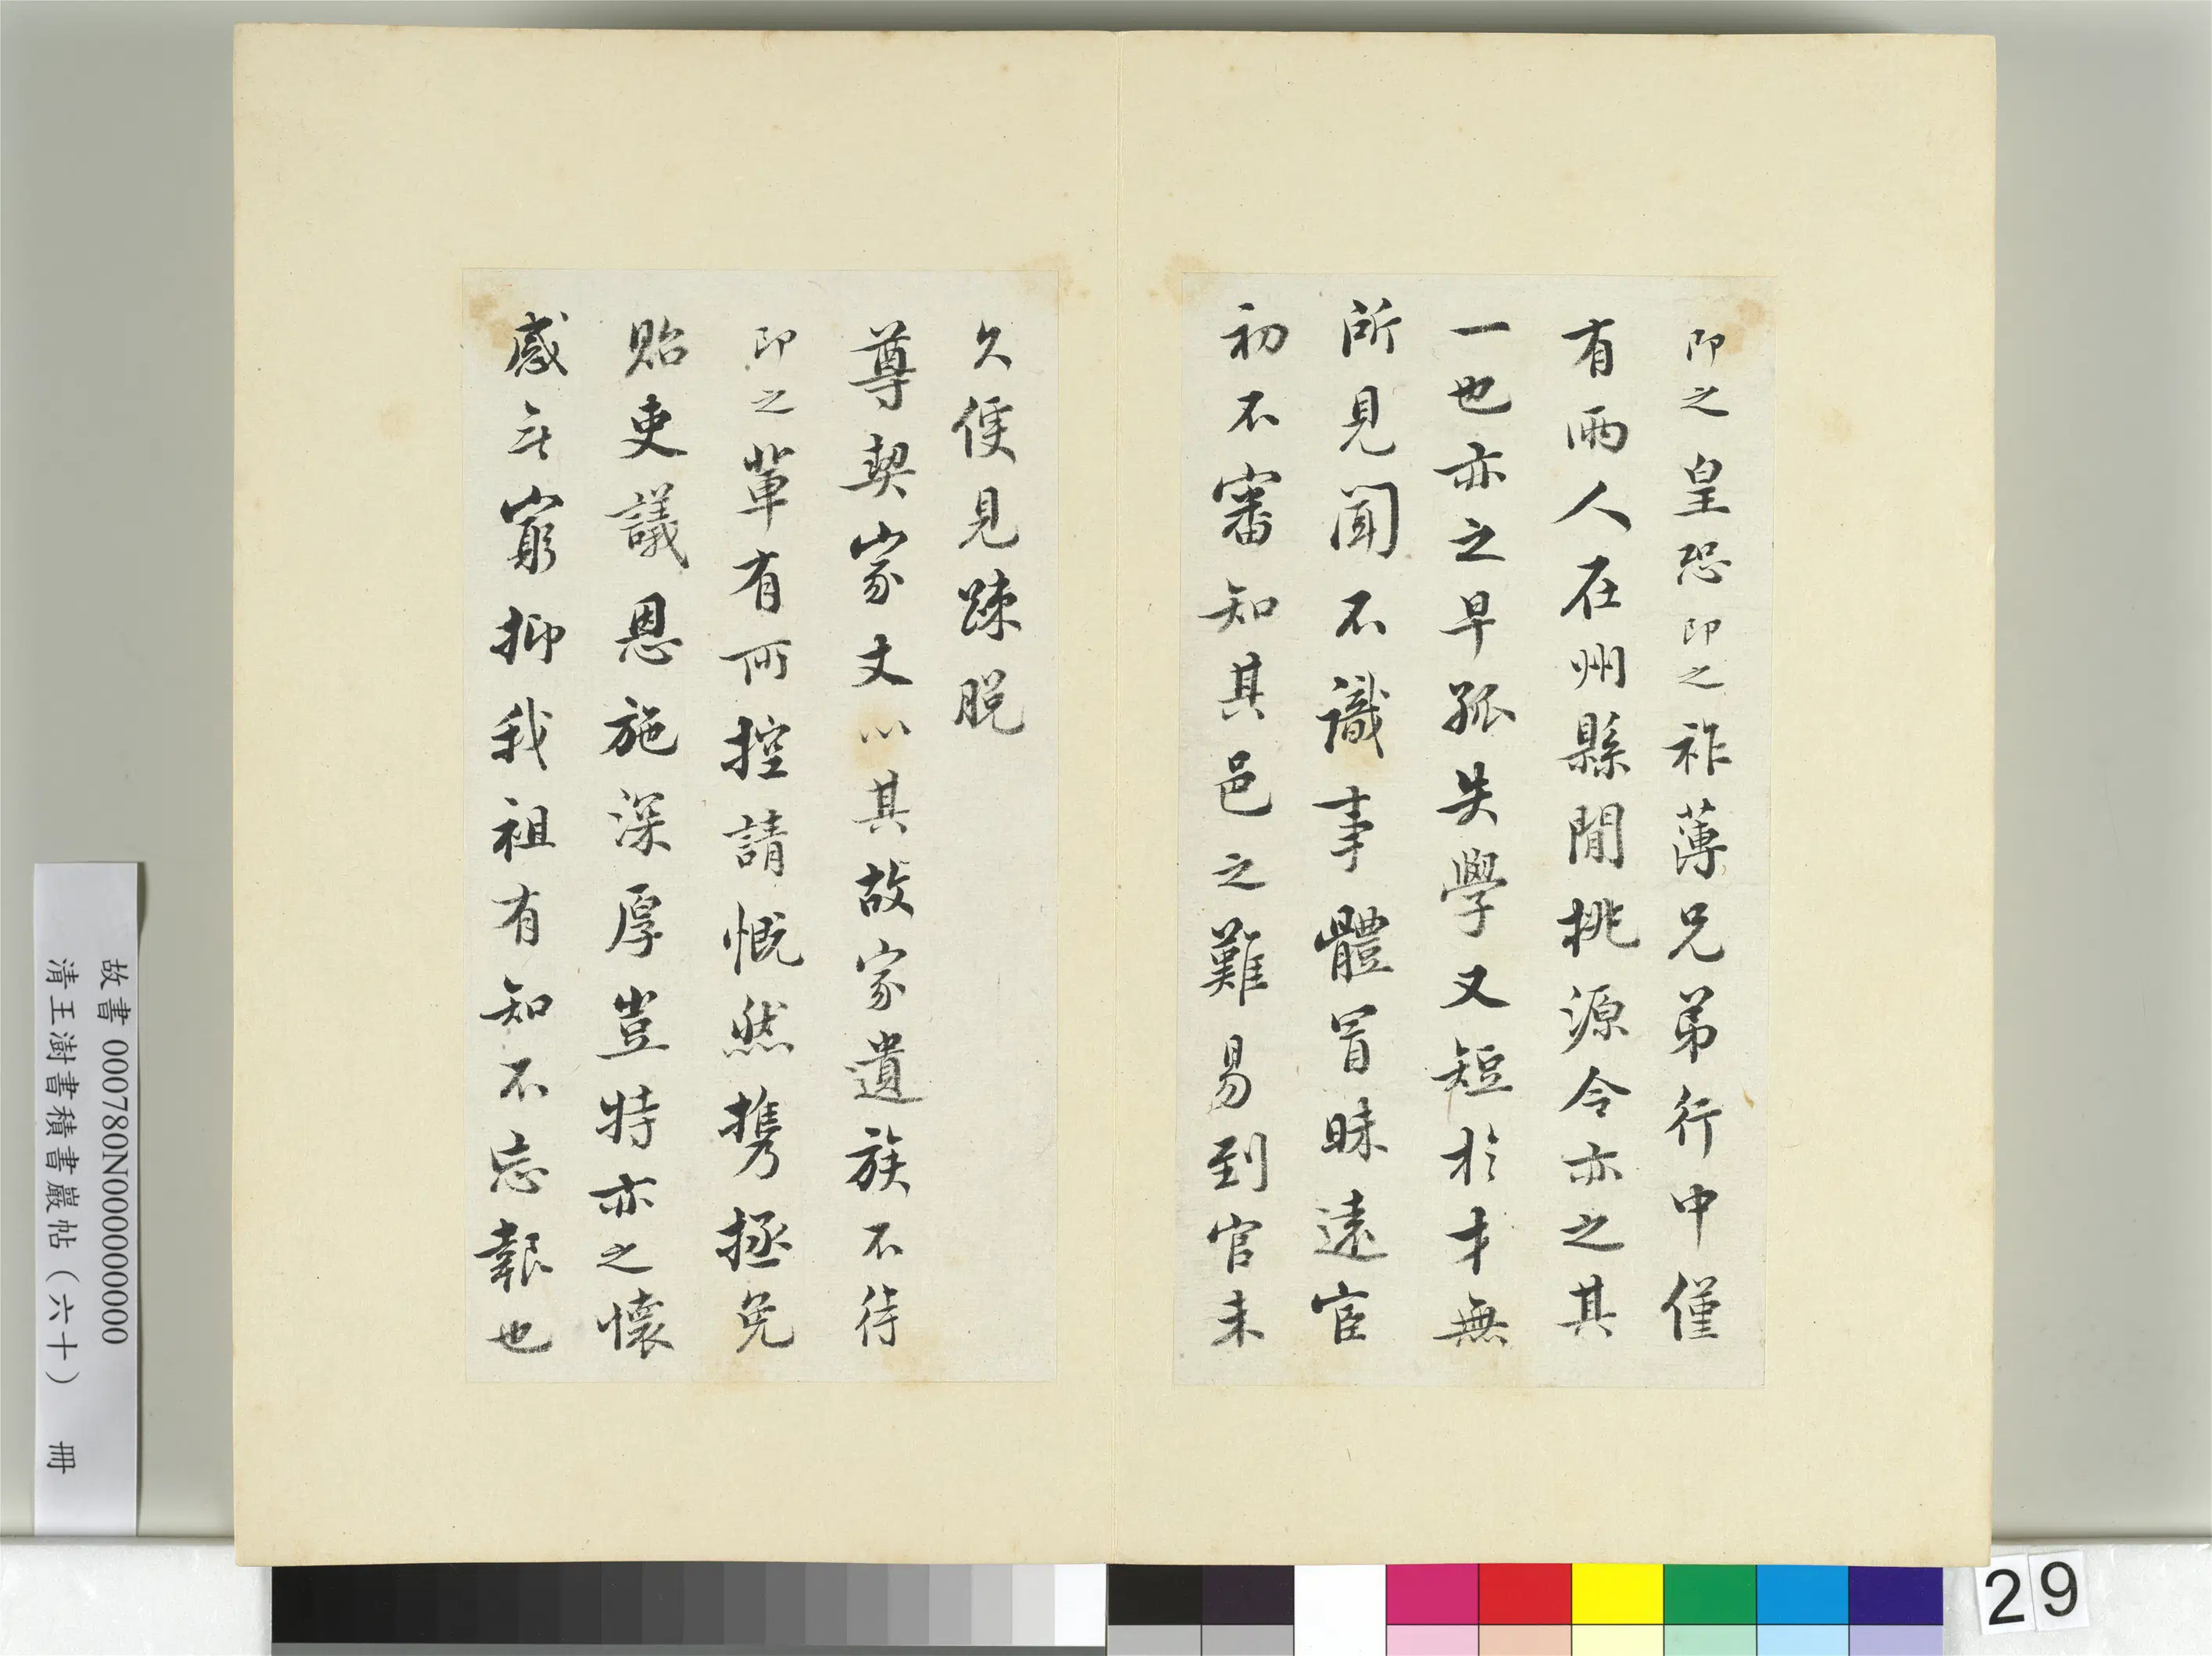 即之皇恐即之祚薄兄弟行中僅
有兩人在州縣間桃源令亦之其
一也亦之早孤失學又短於才無
所見聞不識事體冒昧遠宦
初不審知其邑之難易到官未
久便見踈脱
尊契家丈以其故家遺族不待
即之輩有所控請慨然携拯免
貽吏議恩施深厚豈特亦之懷
感無窮抑我祖有知不忘報也
故書 000780N000000000
清王澍書積書巖帖（六十） 冊
29